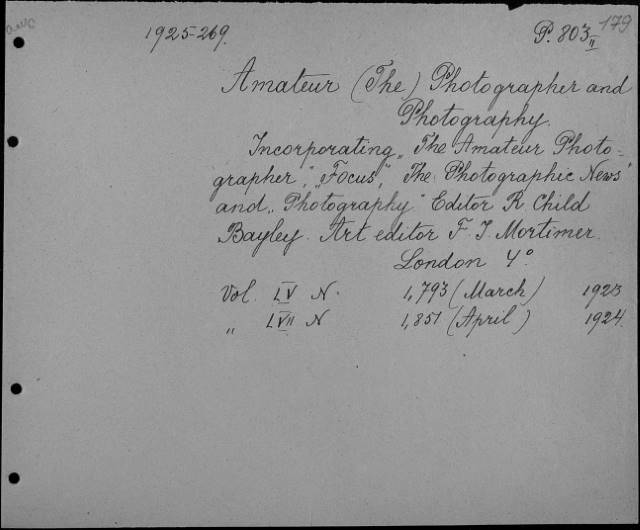 1925-269.
P. 803 II
179
Amateur (The) Photographer and
Photography.
Incorporating „The Amateur Photo-
grapher", „Focus", „The Photographic News"
and „Photography" Editor R. Child
Bayley. Art editor F. J. Mortimer.
London 4°.
Vol. LV N. 1,793 (March) 1923
„ LVII N 1,851 (April) 1924.